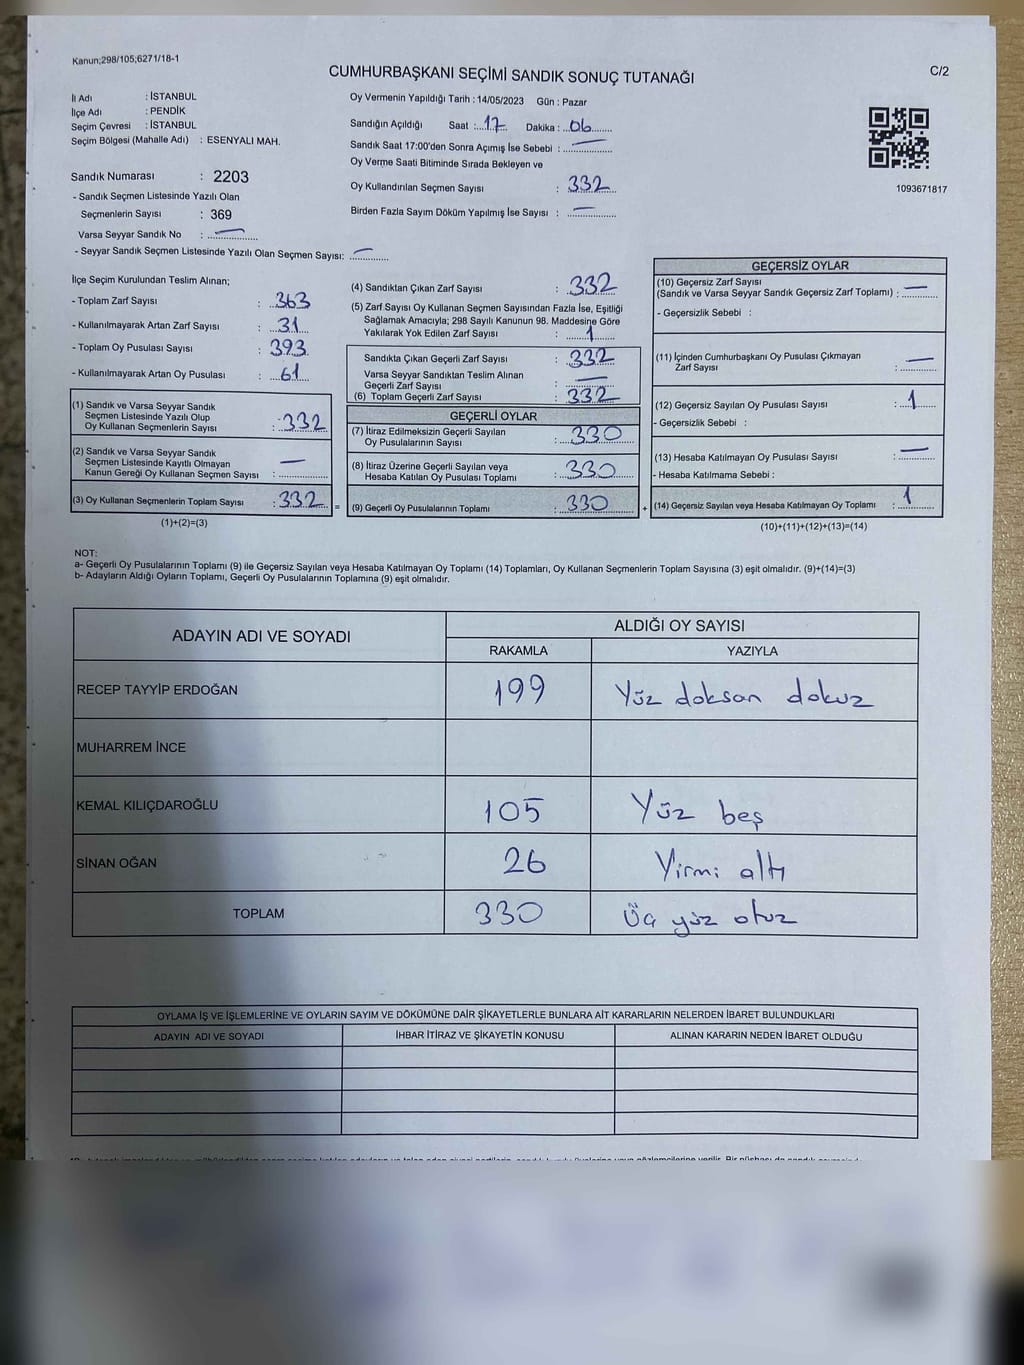 Kanun;298/105;6271/18-1
CUMHURBAŞKANI SEÇİMİ SANDIK SONUÇ TUTANAĞI
C/2
İl Adı : İSTANBUL
İlçe Adı : PENDİK
Seçim Çevresi : İSTANBUL
Seçim Bölgesi (Mahalle Adı) : ESENYALI MAH.
Sandık Numarası : 2203
- Sandık Seçmen Listesinde Yazılı Olan
Seçmenlerin Sayısı : 369
Varsa Seyyar Sandık No : —
- Seyyar Sandık Seçmen Listesinde Yazılı Olan Seçmen Sayısı: —
Oy Vermenin Yapıldığı Tarih : 14/05/2023 Gün : Pazar
Sandığın Açıldığı Saat : 17 Dakika : 06
Sandık Saat 17:00'den Sonra Açımış İse Sebebi : —
Oy Verme Saati Bitiminde Sırada Bekleyen ve
Oy Kullandırılan Seçmen Sayısı : 332
Birden Fazla Sayım Döküm Yapılmış İse Sayısı : —
1093671817
İlçe Seçim Kurulundan Teslim Alınan;
- Toplam Zarf Sayısı : 363
- Kullanılmayarak Artan Zarf Sayısı : 31
- Toplam Oy Pusulası Sayısı : 393
- Kullanılmayarak Artan Oy Pusulası : 61
(1) Sandık ve Varsa Seyyar Sandık
Seçmen Listesinde Yazılı Olup
Oy Kullanan Seçmenlerin Sayısı : 332
(2) Sandık ve Varsa Seyyar Sandık
Seçmen Listesinde Kayıtlı Olmayan
Kanun Gereği Oy Kullanan Seçmen Sayısı : —
(3) Oy Kullanan Seçmenlerin Toplam Sayısı : 332 =
(1)+(2)=(3)
(4) Sandıktan Çıkan Zarf Sayısı : 332
(5) Zarf Sayısı Oy Kullanan Seçmen Sayısından Fazla İse, Eşitliği
Sağlamak Amacıyla; 298 Sayılı Kanunun 98. Maddesine Göre
Yakılarak Yok Edilen Zarf Sayısı : 1
Sandıkta Çıkan Geçerli Zarf Sayısı : 332
Varsa Seyyar Sandıktan Teslim Alınan
Geçerli Zarf Sayısı : —
(6) Toplam Geçerli Zarf Sayısı : 332
GEÇERLİ OYLAR
(7) İtiraz Edilmeksizin Geçerli Sayılan
Oy Pusulalarının Sayısı : 330
(8) İtiraz Üzerine Geçerli Sayılan veya
Hesaba Katılan Oy Pusulası Toplamı : 330
(9) Geçerli Oy Pusulalarının Toplamı : 330 +
GEÇERSİZ OYLAR
(10) Geçersiz Zarf Sayısı
(Sandık ve Varsa Seyyar Sandık Geçersiz Zarf Toplamı) : —
- Geçersizlik Sebebi :
(11) İçinden Cumhurbaşkanı Oy Pusulası Çıkmayan
Zarf Sayısı : —
(12) Geçersiz Sayılan Oy Pusulası Sayısı : 1
- Geçersizlik Sebebi :
(13) Hesaba Katılmayan Oy Pusulası Sayısı : —
- Hesaba Katılmama Sebebi :
(14) Geçersiz Sayılan veya Hesaba Katılmayan Oy Toplamı : 1
(10)+(11)+(12)+(13)=(14)
NOT:
a- Geçerli Oy Pusulalarının Toplamı (9) ile Geçersiz Sayılan veya Hesaba Katılmayan Oy Toplamı (14) Toplamları, Oy Kullanan Seçmenlerin Toplam Sayısına (3) eşit olmalıdır. (9)+(14)=(3)
b- Adayların Aldığı Oyların Toplamı, Geçerli Oy Pusulalarının Toplamına (9) eşit olmalıdır.
ADAYIN ADI VE SOYADI
ALDIĞI OY SAYISI
RAKAMLA YAZIYLA
RECEP TAYYİP ERDOĞAN 199 Yüz doksan dokuz
MUHARREM İNCE
KEMAL KILIÇDAROĞLU 105 Yüz beş
SİNAN OĞAN 26 Yirmi altı
TOPLAM 330 Üç yüz otuz
OYLAMA İŞ VE İŞLEMLERİNE VE OYLARIN SAYIM VE DÖKÜMÜNE DAİR ŞİKAYETLERLE BUNLARA AİT KARARLARIN NELERDEN İBARET BULUNDUKLARI
ADAYIN ADI VE SOYADI İHBAR İTİRAZ VE ŞİKAYETİN KONUSU ALINAN KARARIN NEDEN İBARET OLDUĞU